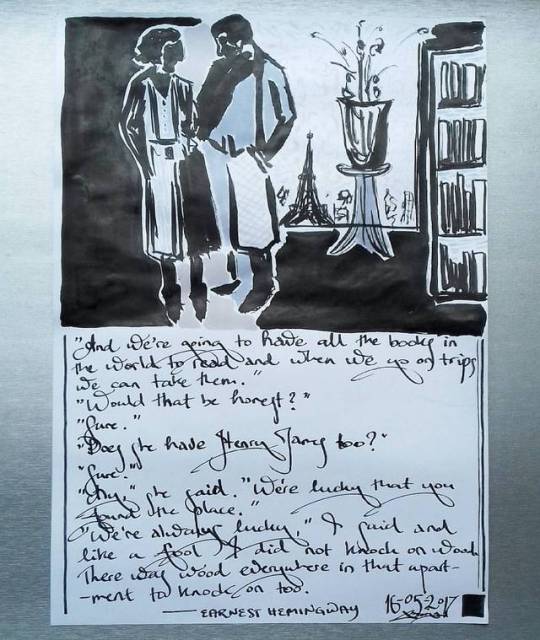 "And we're going to have all the books in
the world to read and when we go on trips
we can take them."
"Would that be honest?"
"Sure."
"Does she have Henry James too?"
"Sure."
"My," she said. "We're lucky that you
found the place."
"We're always lucky," I said and
like a fool I did not knock on wood.
There was wood everywhere in that apart-
-ment to knock on too.
— EARNEST HEMINGWAY 16-05-2017